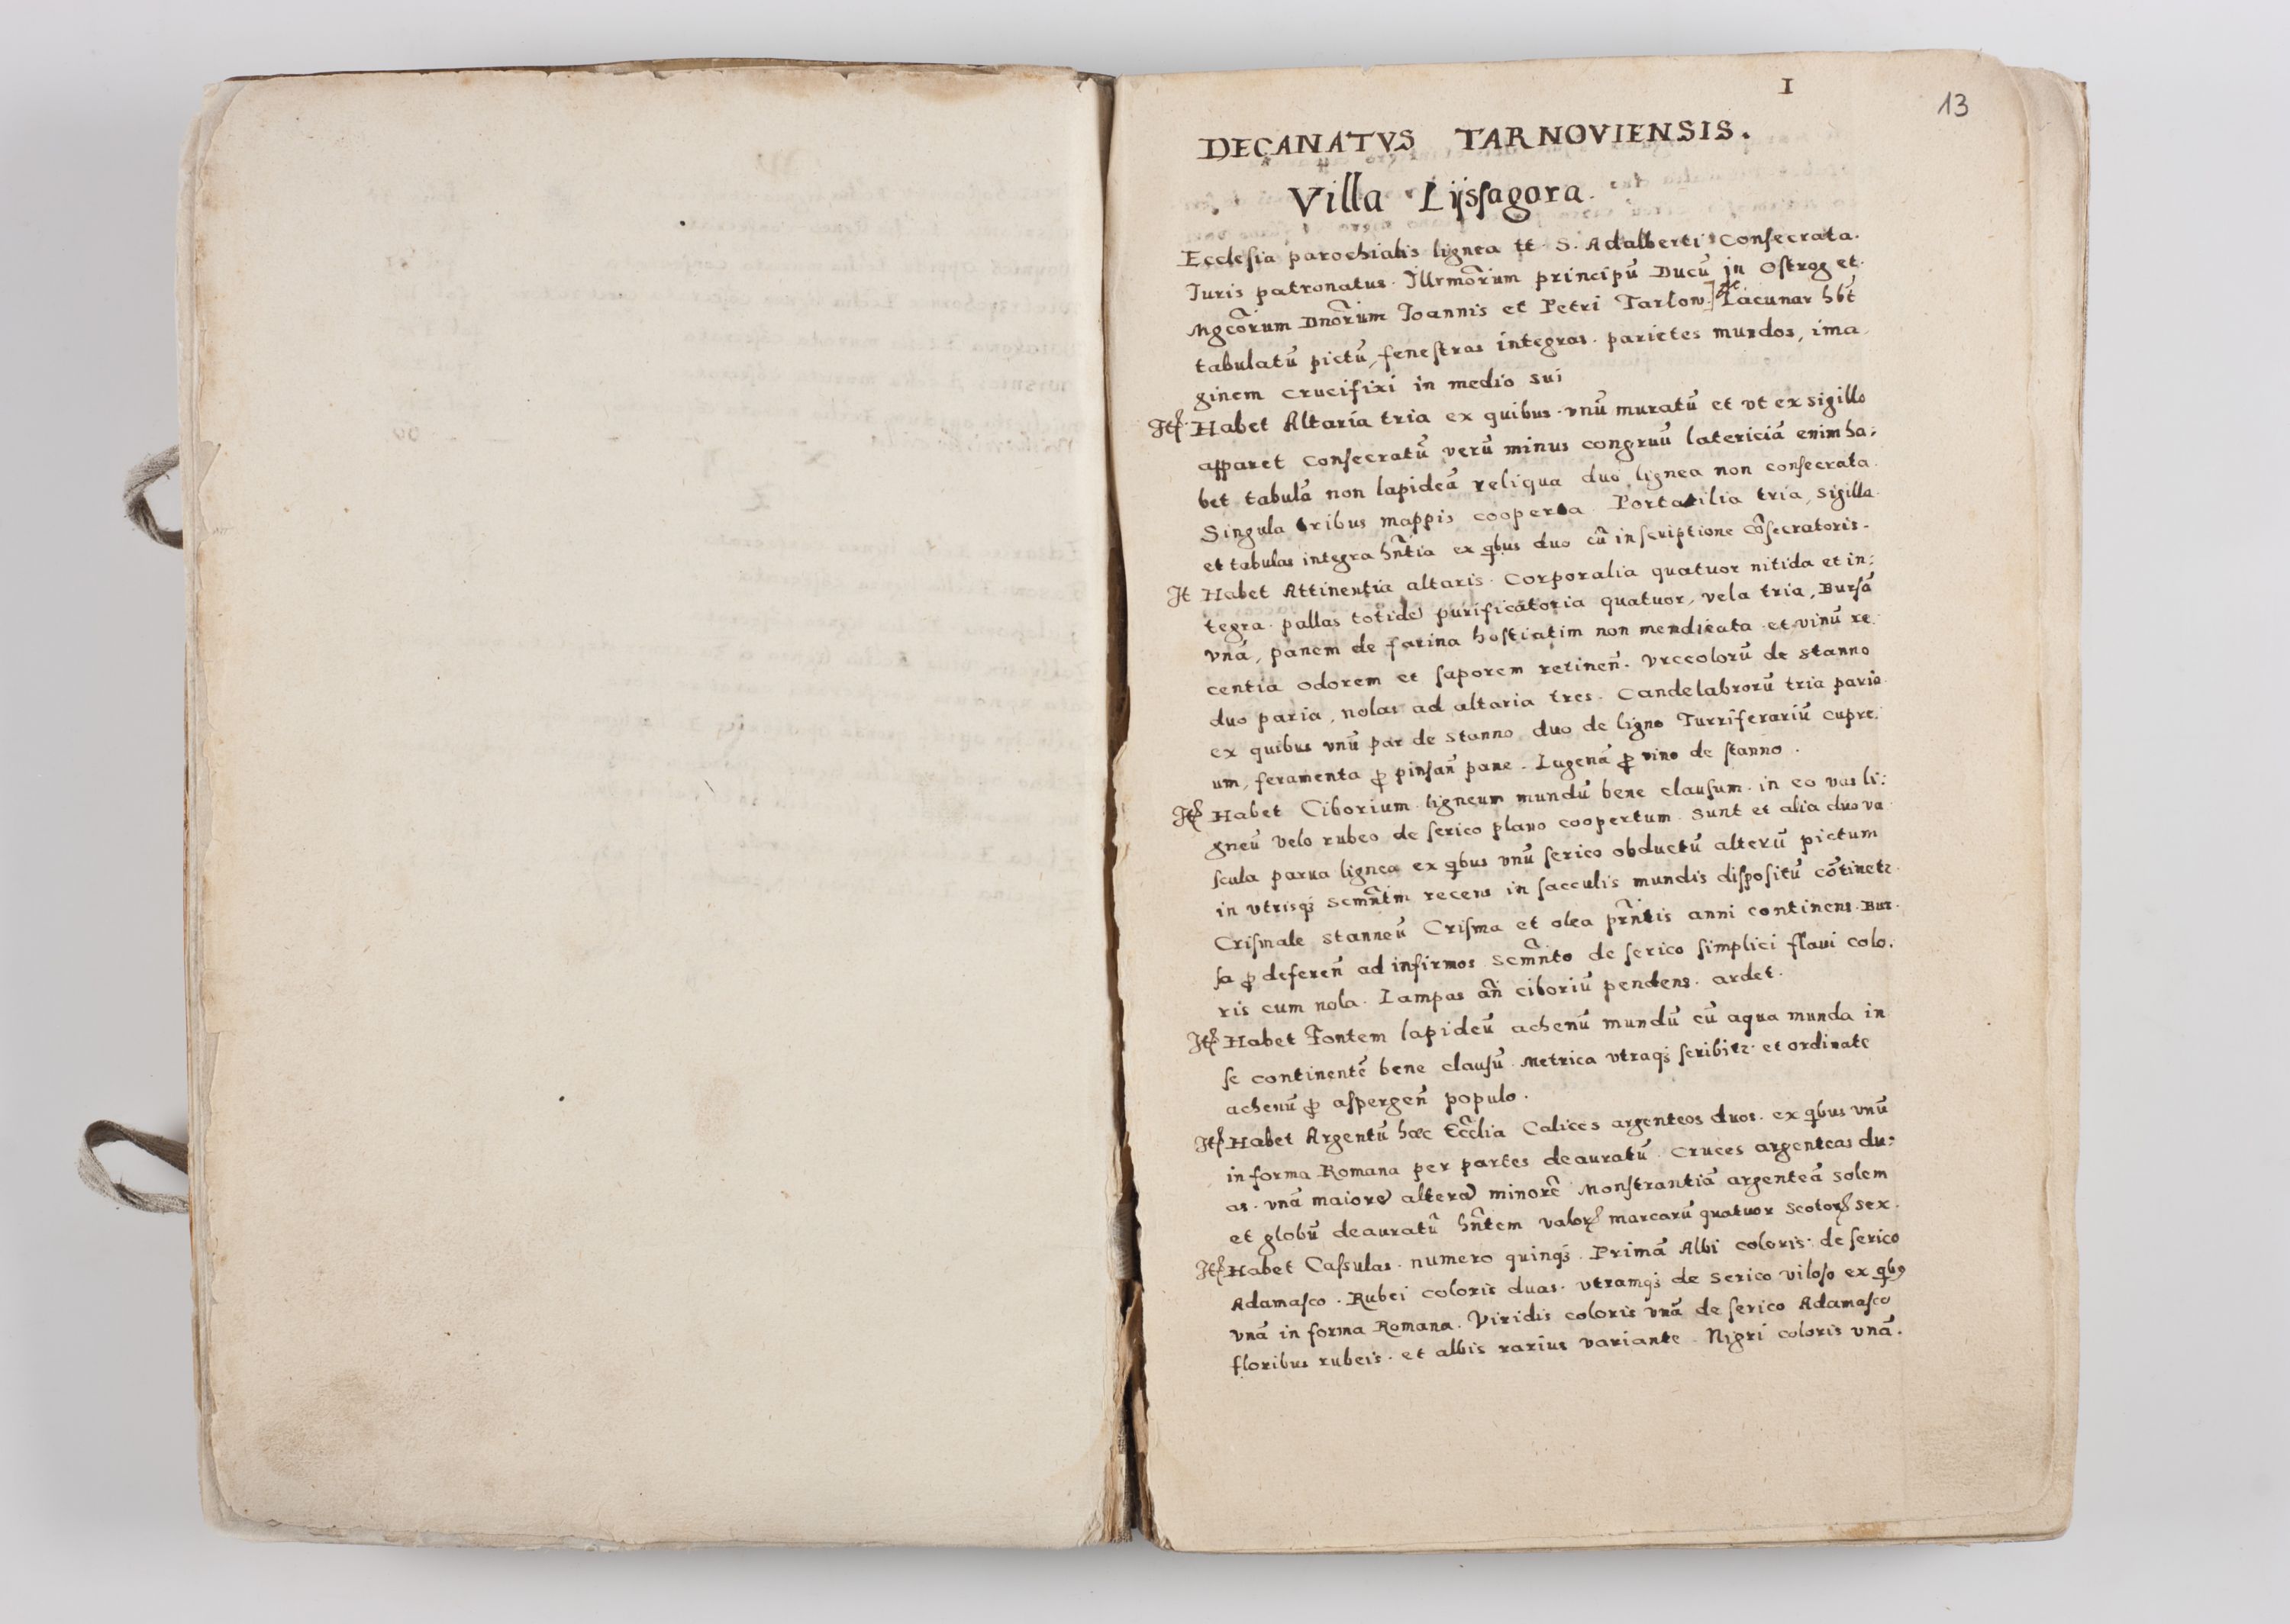 1
13
DECANATVS TARNOVIENSIS.
Villa Lijssagora.
Ecclesia parochialis lignea tt. S. Adalberti Consecrata.
Iuris patronatus. Illrmōrum principū Ducū in Ostrog et
Mgcōrum Dnōrum Ioannis et Petri Tarlow. Lacunar hbt
tabulatū pictū, fenestras integras. parietes mundos, ima
ginem crucifixi in medio sui
It. Habet Altaria tria ex quibus. vnū muratū et vt ex sigillo
apparet consecratū verū minus congruū latericiā enim ha:
bet tabulā non lapideā reliqua duo lignea non consecrata.
Singula tribus mappis cooperta. Portatilia tria, sigilla.
et tabulas integra hñtia ex qbus duo cū inscriptione cōsecratoris.
It Habet Attinentia altaris. Corporalia quatuor nitida et in:
tegra. pallas totidē purificatoria quatuor, vela tria, Bursā
vnā, panem de farina hostiatim non mendicata et vinū re
centia odorem et saporem retineñ. Vrceolorū de stanno
duo paria, nolas ad altaria tres. Candelabrorū tria paria.
ex quibus vnū par de stanno duo de ligno Turriferariū cupre
um, feramenta ꝓ pinsañ pane. Lagenā ꝓ vino de stanno.
It. Habet Ciborium ligneum mundū bene clausum. in eo vas li:
gneū velo rubeo de serico plano coopertum. Sunt et alia duo va
scula parua lignea ex qbus vnū serico obductū alterū pictum
in vtrisqȝ Scmñtm recens in sacculis mundis dispositū cōtinetr.
Crismale stanneū Crisma et olea prñtis anni continens. Bur.
sa ꝓ defereñ ad infirmos Scmñto de serico simplici flaui colo.
ris cum nola. Lampas añ ciboriū pendens. ardet.
It. Habet Fontem lapideū achenū mundū cū aqua munda in
se continentē bene clausū. Metrica vtraqȝ scribitr. et ordinate
achenū ꝓ aspergeñ populo.
It. Habet Argentū hæc Ecclia Calices argenteos duos. ex qbus vnū
in forma Romana per partes deauratū. Cruces argenteas du:
as. vnā maiorē alterā minorē Monstrantiā argenteā Solem
et globū deauratū hñtem valorꝭ marcarū quatuor scotorꝝ sex.
It. Habet Casulas. numero quinqȝ. Primā Albi coloris. de serico
Adamasco. Rubei coloris duas. vtramqȝ de serico viloso ex qbꝰ
vnā in forma Romana. Viridis coloris vnā de serico Adamasco
floribus rubeis. et albis rarius variante. Nigri coloris vnā.